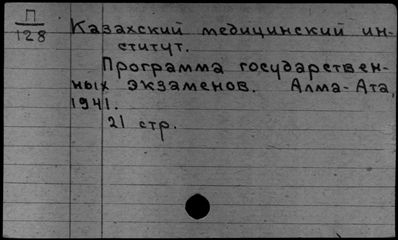 П
128
Казахский медицинский ин-
ститут.
Программа государствен-
ных экзаменов. Алма-Ата,
1941.
21 стр.